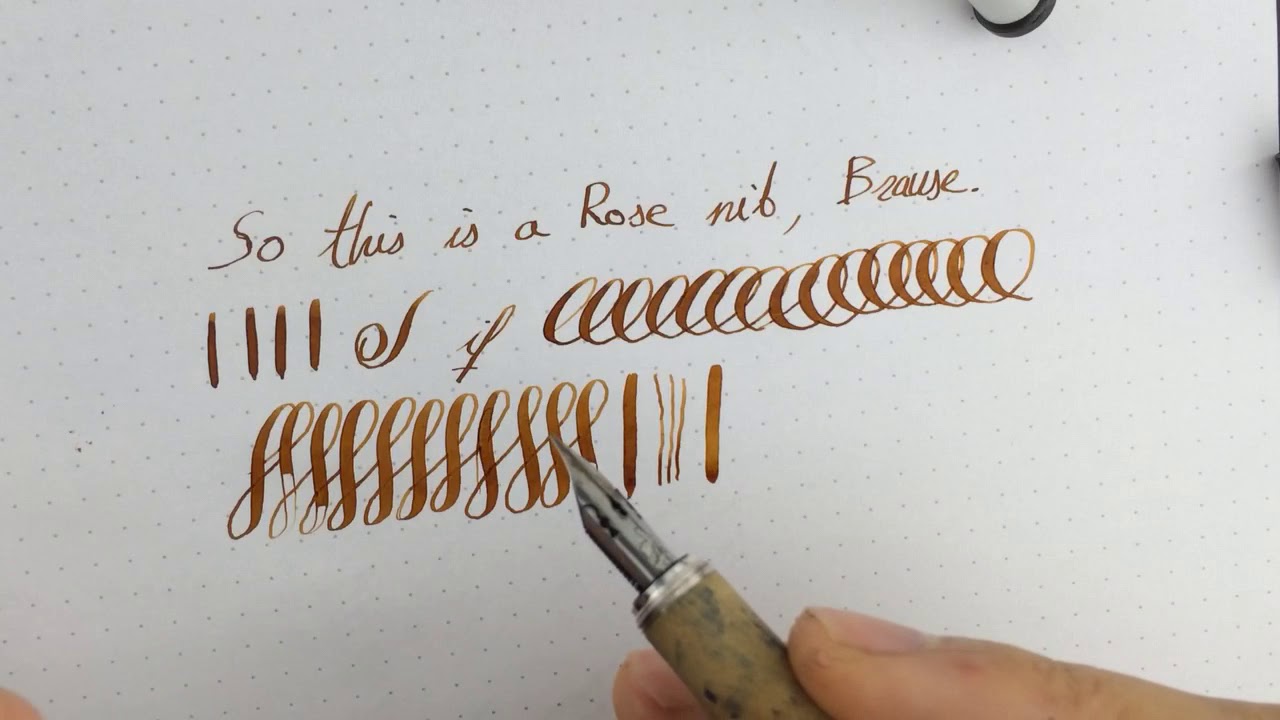 So this is a Rose nib, Brause.
if